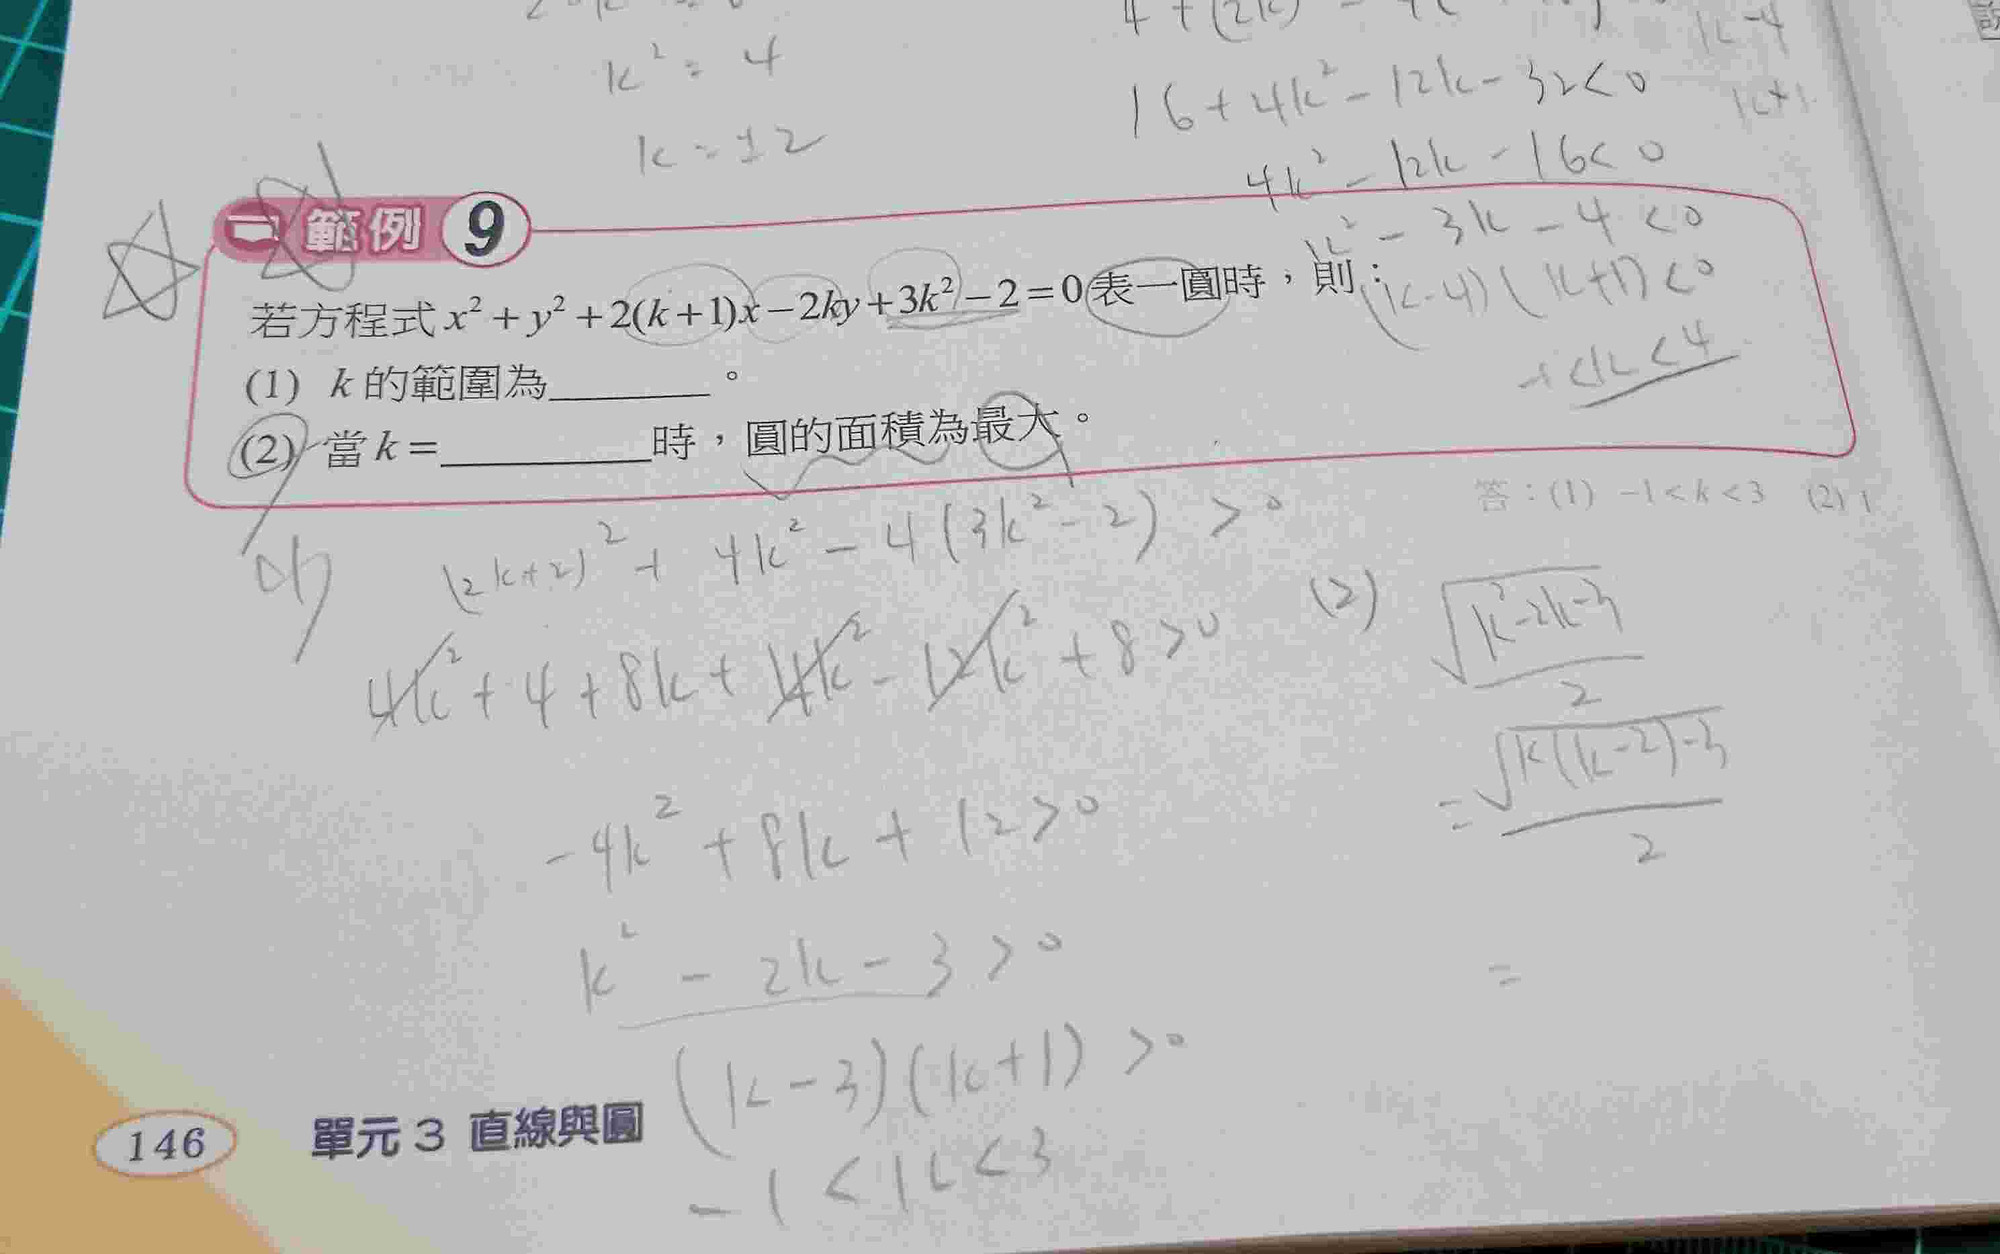 k² = 4
k = ±2
16 + 4k² - 12k - 32 < 0
4k² - 12k - 16 < 0
k² - 3k - 4 < 0
(k-4)(k+1) < 0
-1 < k < 4
k-4
k+1
範例 9
若方程式 x² + y² + 2(k+1)x - 2ky + 3k² - 2 = 0 表一圓時,則:
(1) k 的範圍為________。
(2) 當 k = __________ 時,圓的面積為最大。
答:(1) -1 < k < 3 (2) 1
(2k+2)² + 4k² - 4(3k² - 2) > 0
4k² + 4 + 8k + 4k² - 12k² + 8 > 0
-4k² + 8k + 12 > 0
k² - 2k - 3 > 0
(k-3)(k+1) > 0
-1 < k < 3
(2) √(k²-2k-3) / 2
= √(k(k-2)-3) / 2
=
146 單元 3 直線與圓